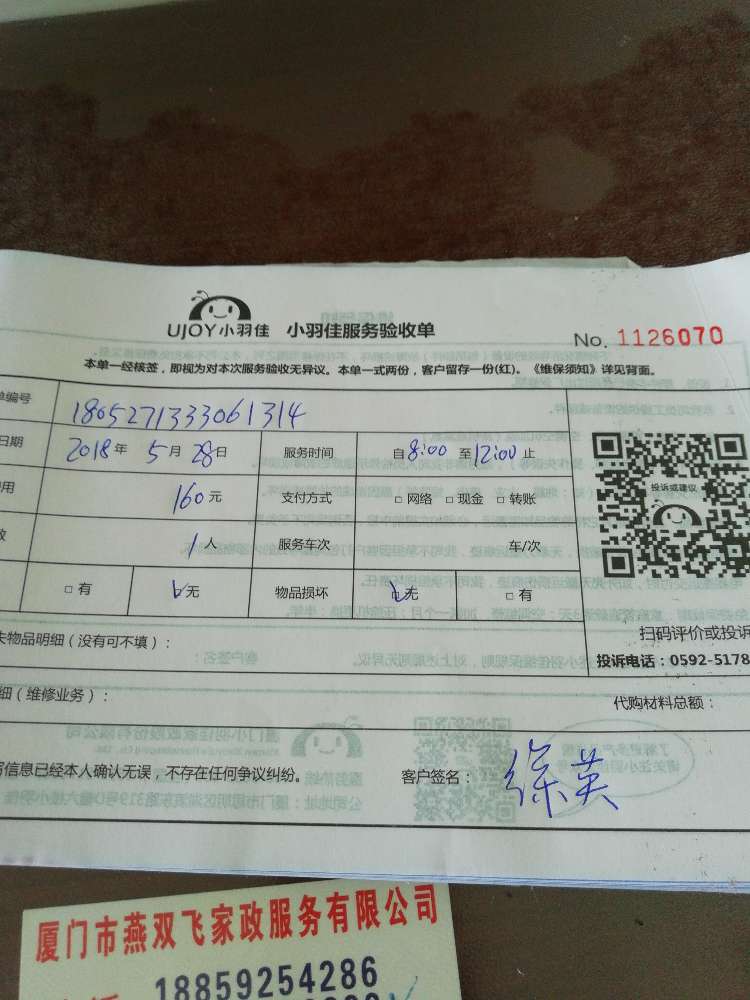 UJOY小羽佳 小羽佳服务验收单
No. 1126070
本单一经核签，即视为对本次服务验收无异议。本单一式两份，客户留存一份(红)。《维保须知》详见背面。
单编号 180527133306 1314
日期 2018年 5月 28日 服务时间 自8:00 至12:00止
用 160元 支付方式 □ 网络 □ 现金 □ 转账
数 1人 服务车次 车/次
□ 有 □无 物品损坏 □无 □ 有
投诉或建议
扫码评价或投诉
失物品明细（没有可不填）：
投诉电话：0592-5178
细（维修业务）：
代购材料总额：
写信息已经本人确认无误，不存在任何争议纠纷。 客户签名： 徐英
厦门市燕双飞家政服务有限公司
18859254286